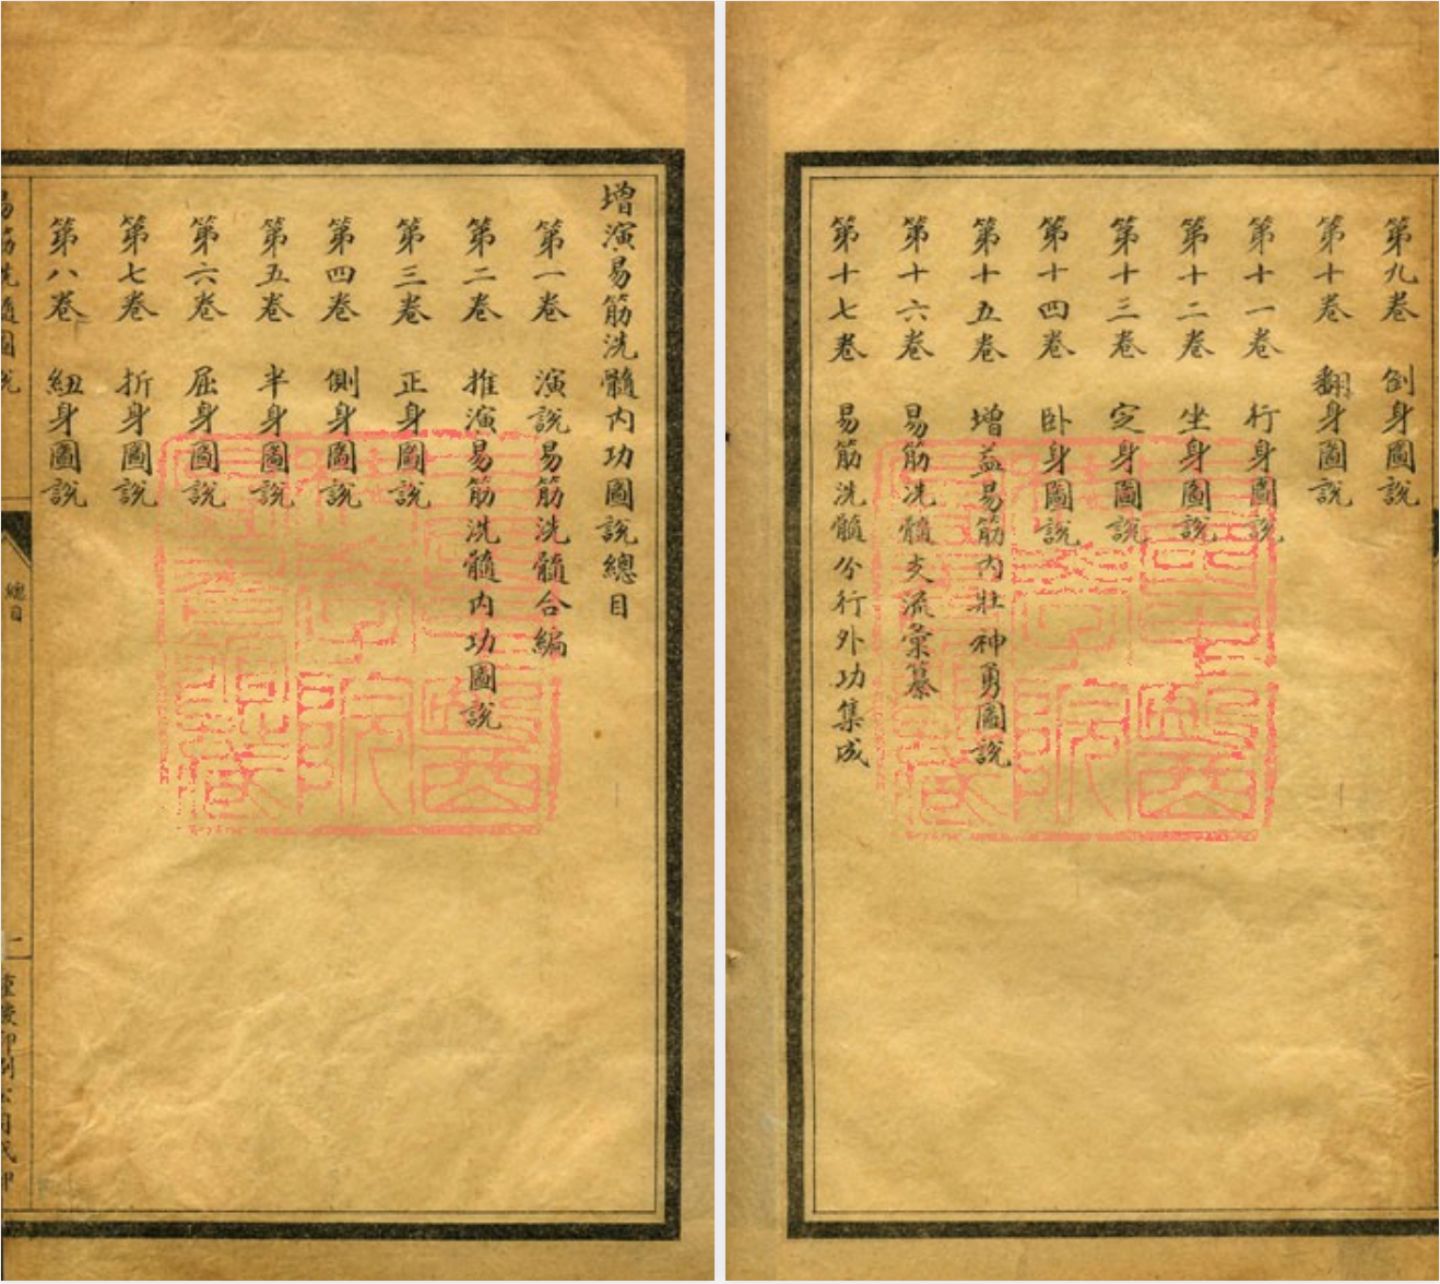 增演易筋洗髓內功圖說總目
第一卷 演說易筋洗髓合編
第二卷 推演易筋洗髓內功圖說
第三卷 正身圖說
第四卷 側身圖說
第五卷 半身圖說
第六卷 屈身圖說
第七卷 折身圖說
第八卷 紐身圖說
總目
第九卷 倒身圖說
第十卷 翻身圖說
第十一卷 行身圖說
第十二卷 坐身圖說
第十三卷 定身圖說
第十四卷 卧身圖說
第十五卷 增益易筋內壯神勇圖說
第十六卷 易筋洗髓支流彙纂
第十七卷 易筋洗髓分行外功集成